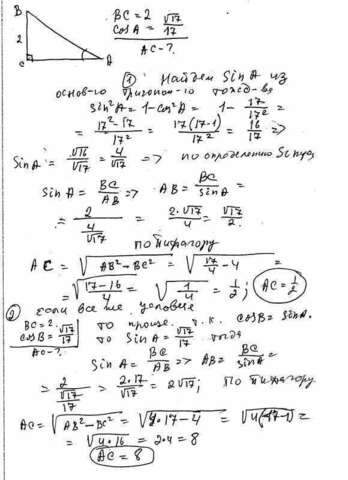 B
2
C
A
BC=2
cosA = √17/17
AC-?
① Найдем sinA из
основ-го тригоном-го тожд-ва
sin²A = 1-cos²A = 1 - 17/17² =
= 17²-17/17² = 17(17-1)/17² = 16/17 =>
sinA = √16/√17 = 4/√17 => по определению синуса
sinA = BC/AB => AB = BC/sinA =
= 2/(4/√17) = 2·√17/4 = √17/2.
по Пифагору
AC = √(AB²-BC²) = √(17/4 - 4) =
= √((17-16)/4) = √(1/4) = 1/2; AC = 1/2
② если все же условие
BC=2. cosB = √17/17 AC-?
то т.к. cosB = sinA.
то sinA = √17/17 тогда
sinA = BC/AB => AB = BC/sinA =
= 2/(√17/17) = 2·17/√17 = 2√17; по Пифагору
AC = √(AB²-BC²) = √(4·17-4) = √(4(17-1)) =
= √(4·16) = 2·4 = 8
AC = 8